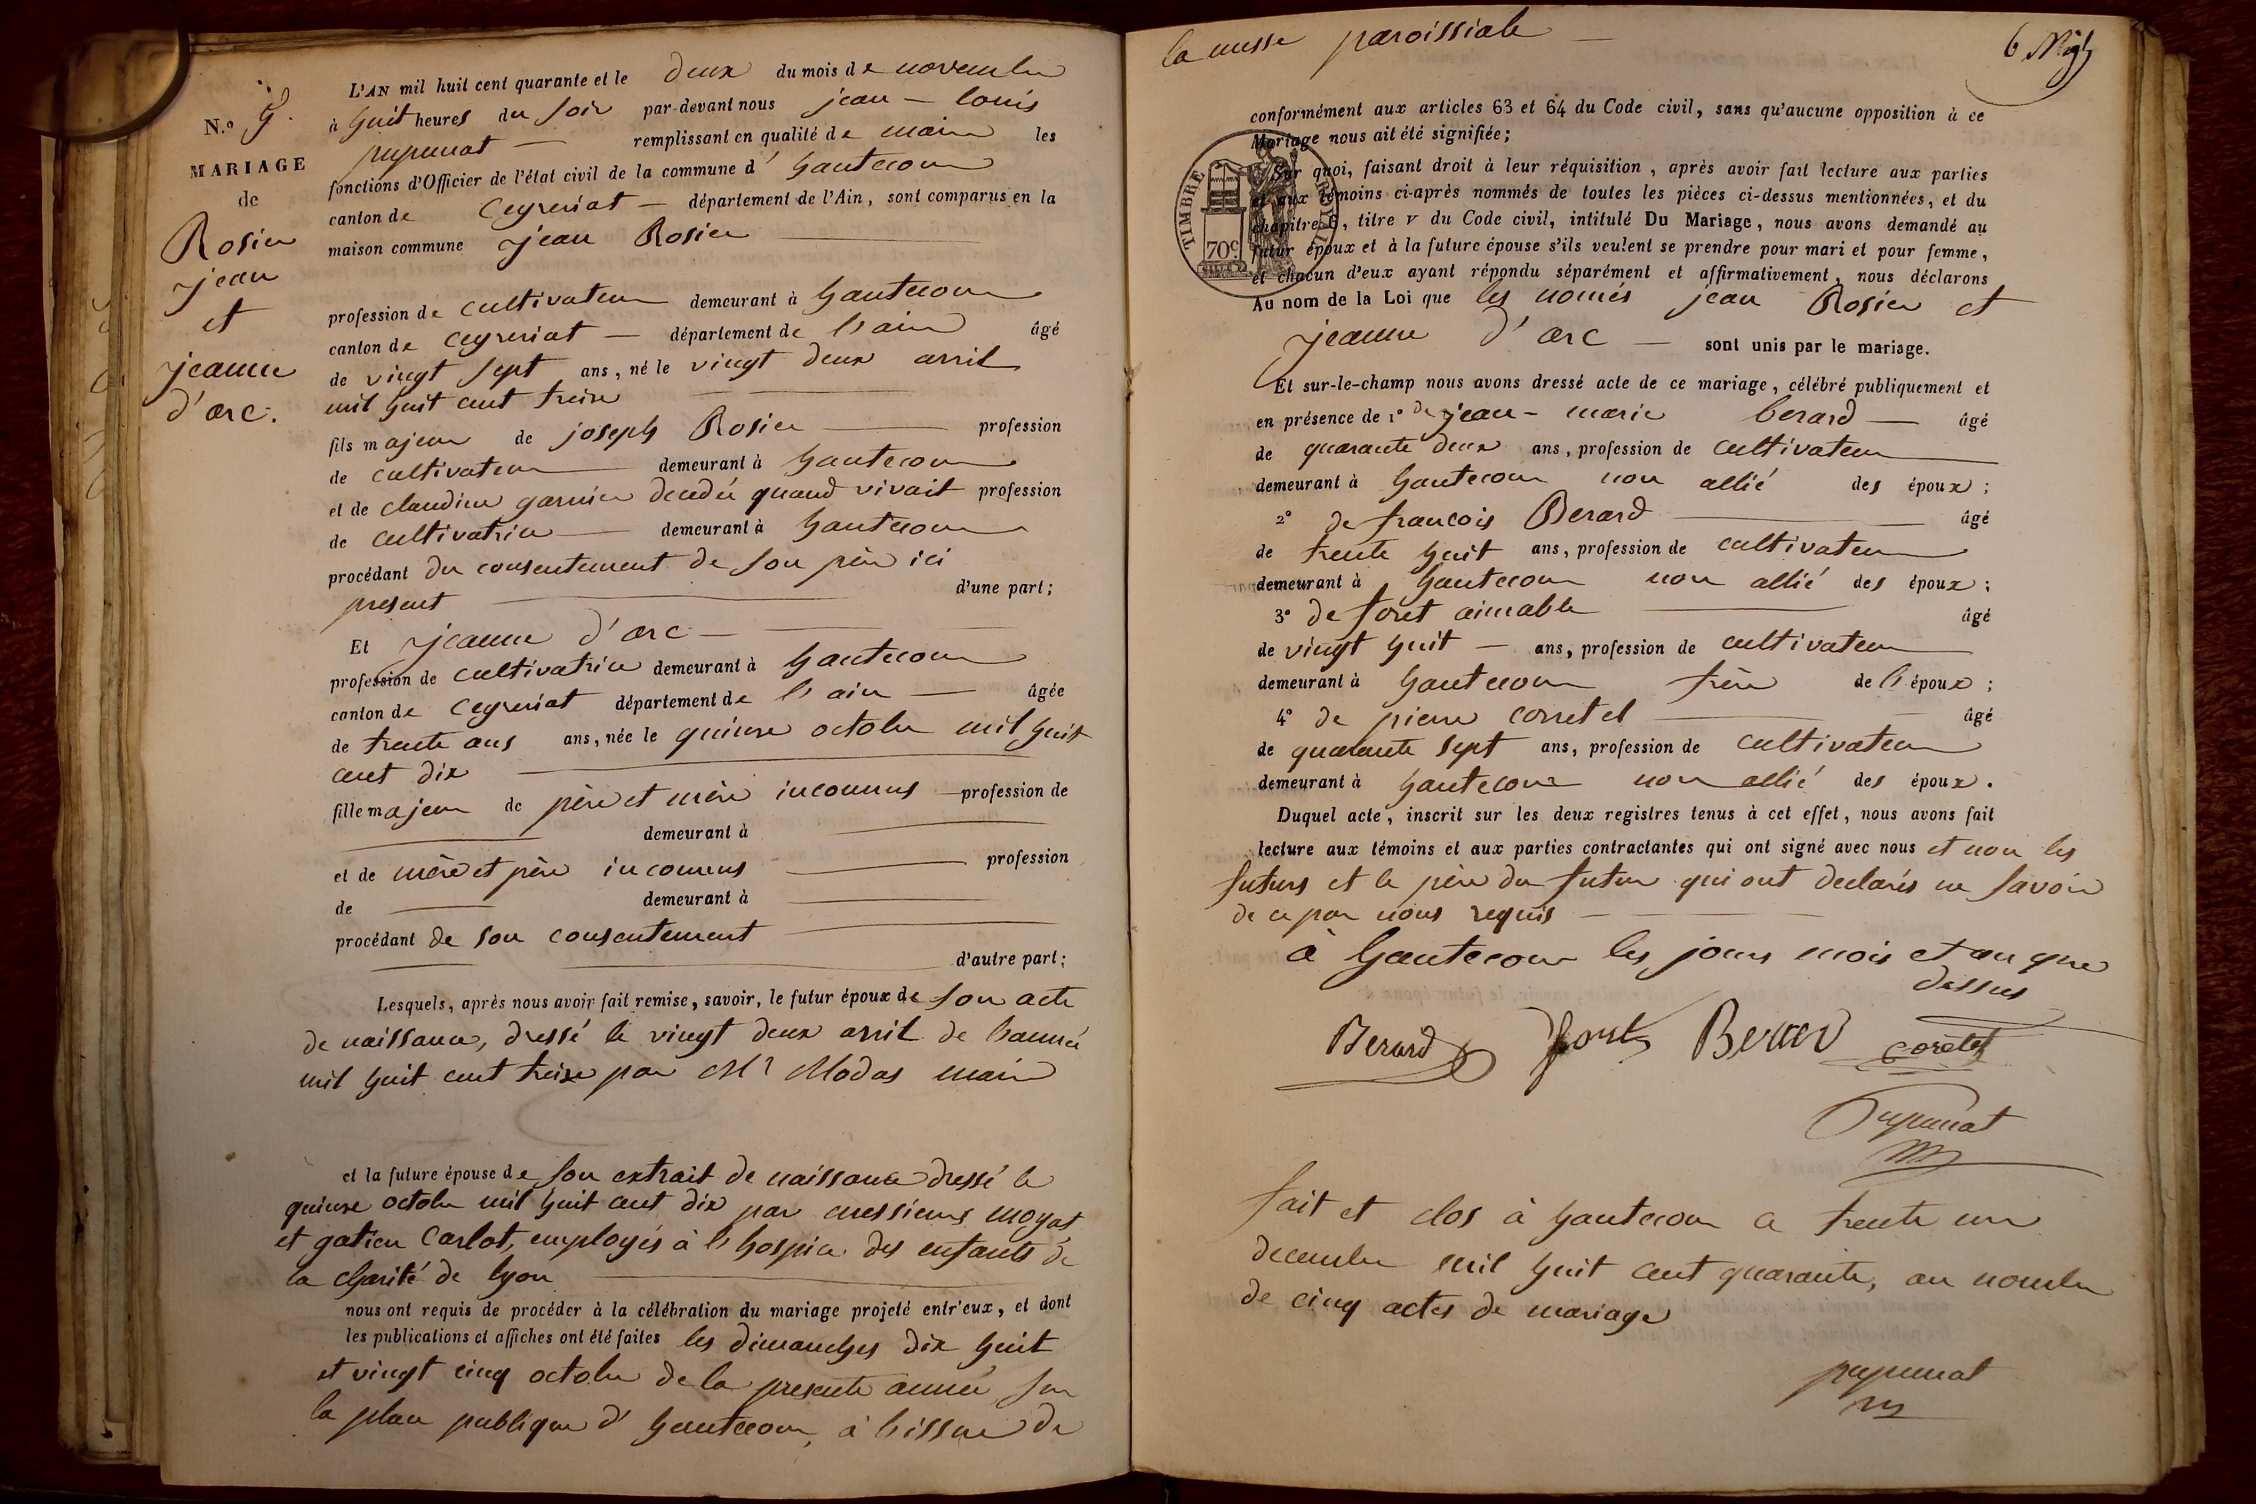 N.º 5.
MARIAGE
de
Rosier
jean
et
jeanne
d'arc.
L'AN mil huit cent quarante et le deux du mois de novembre
à huit heures du soir par-devant nous jean - louis
pupunat remplissant en qualité de maire les
fonctions d'Officier de l'état civil de la commune d'hautecour
canton de Ceyzeriat département de l'Ain, sont comparus en la
maison commune jean Rosier
profession de cultivateur demeurant à hautecour
canton de ceyzeriat département de l'ain âgé
de vingt sept ans, né le vingt deux avril
mil huit cent treize
fils majeur de joseph Rosier profession
de cultivateur demeurant à hautecour
et de claudine garnier decedée quand vivait profession
de cultivatrice demeurant à hautecour
procédant du consentement de son père ici
present d'une part;
Et jeanne d'arc
profession de cultivatrice demeurant à hautecour
canton de ceyzeriat département de l'ain âgée
de trente ans ans, née le quinze octobre mil huit
cent dix
fille majeur de père et mère inconnus profession de
demeurant à
et de mère et père inconnus profession
de demeurant à
procédant de son consentement
d'autre part;
Lesquels, après nous avoir fait remise, savoir, le futur époux de son acte
de naissance, dressé le vingt deux avril de l'année
mil huit cent treize par Mr Modas maire
et la future épouse de son extrait de naissance dressé le
quinze octobre mil huit cent dix par messieurs moyat
et gatien Carlot, employés à l'hospice des enfants de
la charité de lyon
nous ont requis de procéder à la célébration du mariage projeté entr'eux, et dont
les publications et affiches ont été faites les dimanches dix huit
et vingt cinq octobre de la presente année sur
la place publique d'hautecour, à l'issue de
la messe paroissiale
conformément aux articles 63 et 64 du Code civil, sans qu'aucune opposition à ce
Mariage nous ait été signifiée;
TIMBRE ROYAL
70c
Sur quoi, faisant droit à leur réquisition, après avoir fait lecture aux parties
et aux témoins ci-après nommés de toutes les pièces ci-dessus mentionnées, et du
chapitre 6, titre V du Code civil, intitulé Du Mariage, nous avons demandé au
futur époux et à la future épouse s'ils veulent se prendre pour mari et pour femme,
et chacun d'eux ayant répondu séparément et affirmativement, nous déclarons
Au nom de la Loi que les només jean Rosier et
jeanne d'arc sont unis par le mariage.
Et sur-le-champ nous avons dressé acte de ce mariage, célébré publiquement et
en présence de 1º de jean - marie berard âgé
de quarante deux ans, profession de cultivateur
demeurant à hautecour non allié des époux;
2º de francois Berard âgé
de trente huit ans, profession de cultivateur
demeurant à hautecour non allié des époux;
3º de foret aimable âgé
de vingt huit ans, profession de cultivateur
demeurant à hautecour frère de l'époux;
4º de pierre corretel âgé
de quarante sept ans, profession de cultivateur
demeurant à hautecour non allié des époux.
Duquel acte, inscrit sur les deux registres tenus à cet effet, nous avons fait
lecture aux témoins et aux parties contractantes qui ont signé avec nous et non les
futurs et le père du futur qui ont declarés ne savoir
de ce par nous requis
à hautecour les jours mois et an que
dessus
Berard Berard corètel
pupunat
fait et clos à hautecour ce trente un
decembre mil huit cent quarante, au nombre
de cinq actes de mariage
pupunat